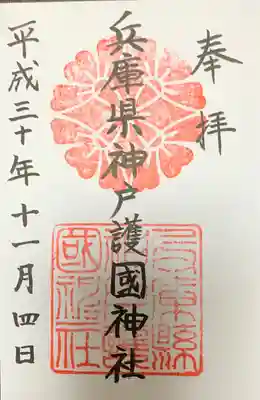 奉拝
兵庫県神戸護國神社
平成三十年十一月四日